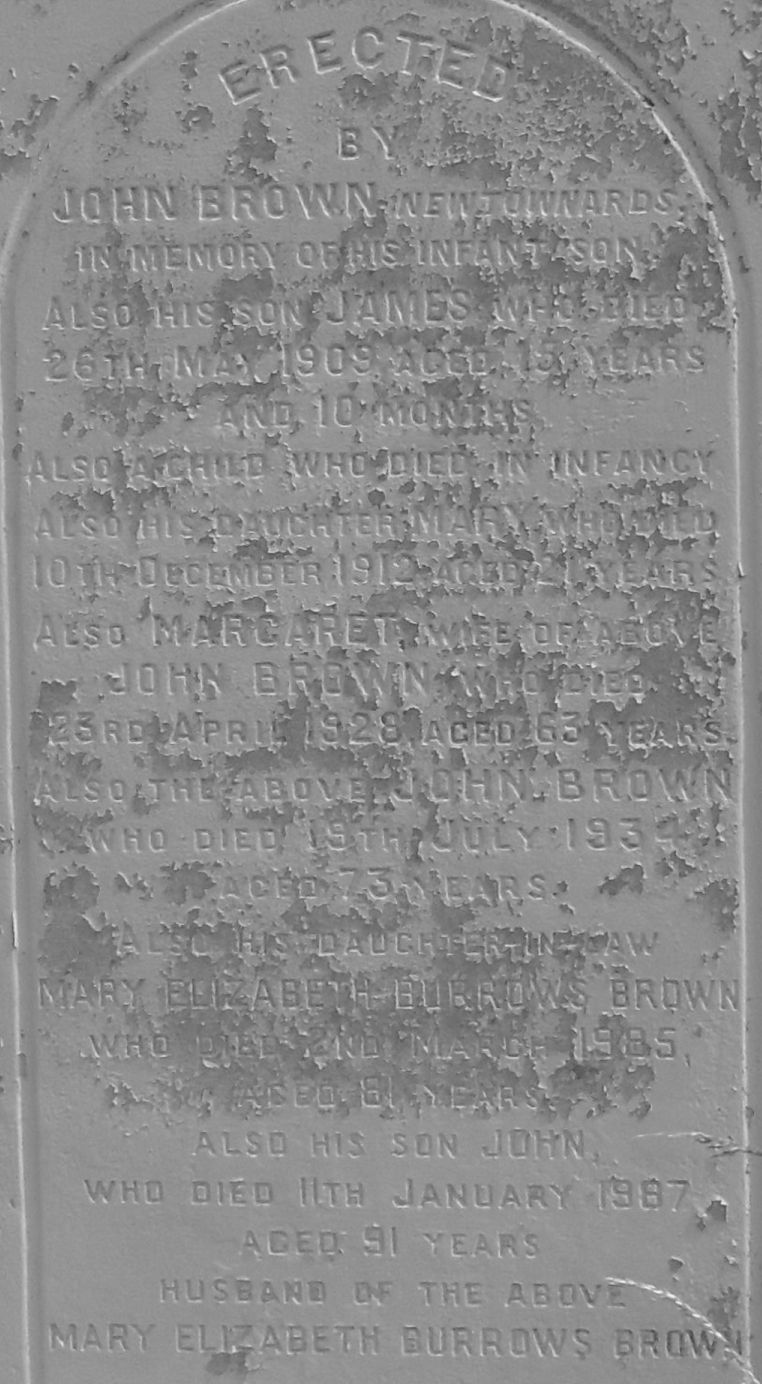 ERECTED
BY
JOHN BROWN NEWTOWNARDS,
IN MEMORY OF HIS INFANT SON
ALSO HIS SON JAMES WHO DIED
26TH MAY 1909 AGED 15 YEARS
AND 10 MONTHS
ALSO A CHILD WHO DIED IN INFANCY
ALSO HIS DAUGHTER MARY WHO DIED
10TH DECEMBER 1912 AGED 21 YEARS
ALSO MARGARET WIFE OF ABOVE
JOHN BROWN WHO DIED
23RD APRIL 1928 AGED 63 YEARS
ALSO THE ABOVE JOHN BROWN
WHO DIED JULY 1934
AGED 73 YEARS
ALSO HIS DAUGHTER-IN-LAW
MARY ELIZABETH BURROWS BROWN
WHO DIED 2ND MARCH 1985,
AGED 81 YEARS
ALSO HIS SON JOHN,
WHO DIED 11TH JANUARY 1987
AGED 91 YEARS
HUSBAND OF THE ABOVE
MARY ELIZABETH BURROWS BROWN